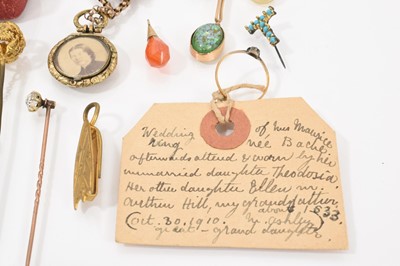 Wedding of Mrs Maurice
ring née Bache
afterwards altered & worn by her
unmarried daughter Theodosia
Her other daughter Ellen m.
Arthur Hill, my grandfather
about 1833
(Oct. 30, 1910. M. Ashley
great-grand daughter)